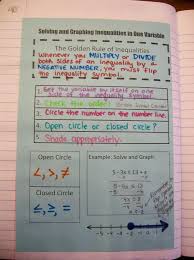 Solving and Graphing Inequalities in One Variable
The Golden Rule of Inequalities
Whenever you MULTIPLY or DIVIDE
both sides of an inequality by a
NEGATIVE NUMBER, you must flip
the inequality symbol.
1. Get the variable by itself on one
side of the inequality symbol
2. Check the order!
3. Circle the number on the number line.
4. Open circle or closed circle?
5. Shade appropriately.
Open Circle
<, >, ≠
Closed Circle
≤, ≥, =
Example: Solve and Graph: